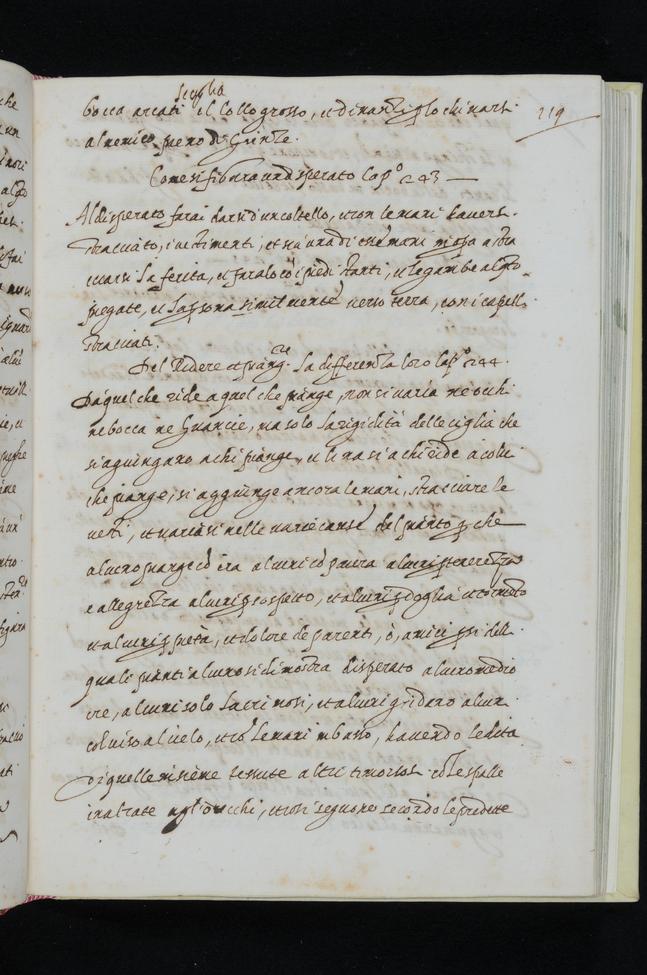 seroglia
219
bocca arcati il collo grosso, et dinanti p lo chinarsi
al nemico pieno di Grinze.
Come si figura un disperato Capº 243
Al disperato farai darsi d'un coltello, et con le mani haversi
stracciato, i vestimenti, et sia una di esse mani in opa a stra
cciarsi la ferita, et faralo cō i piedi stanti, et le gambe alqto
piegate, et la psona similmente verso terra, con i capelli
stracciati.
Del Ridere et piangere la differentia loro Capº 244.
Da quel che ride a quel che piange, non si varia ne ochi
ne bocca ne Guancie, ma solo la rigidità delle ciglia che
si agiungano a chi piange, et levasi a chi ride a colui
che piange, si aggiunge ancora le mani, stracciare le
vesti, et variasi nelle varie cause del pianto p che
alcuno piange cō ira alcuni cō paura alcuni p tenerezza
e allegrezza alcuni p sospetto, et alcuni p doglia et tormento
et alcuni p pietà, et dolore de parenti, ò, amici psi delli
quali pianti alcuno si dimostra disperato alcuno medio
cre, alcuni solo lacrimosi, et alcuni gridano alcuni
col viso al cielo, et cō le mani in basso, havendo le dita
di quelle insieme tessute altri timorosi cō le spalle
inalzate agli orecchi, et cosi seguono secondo le predette